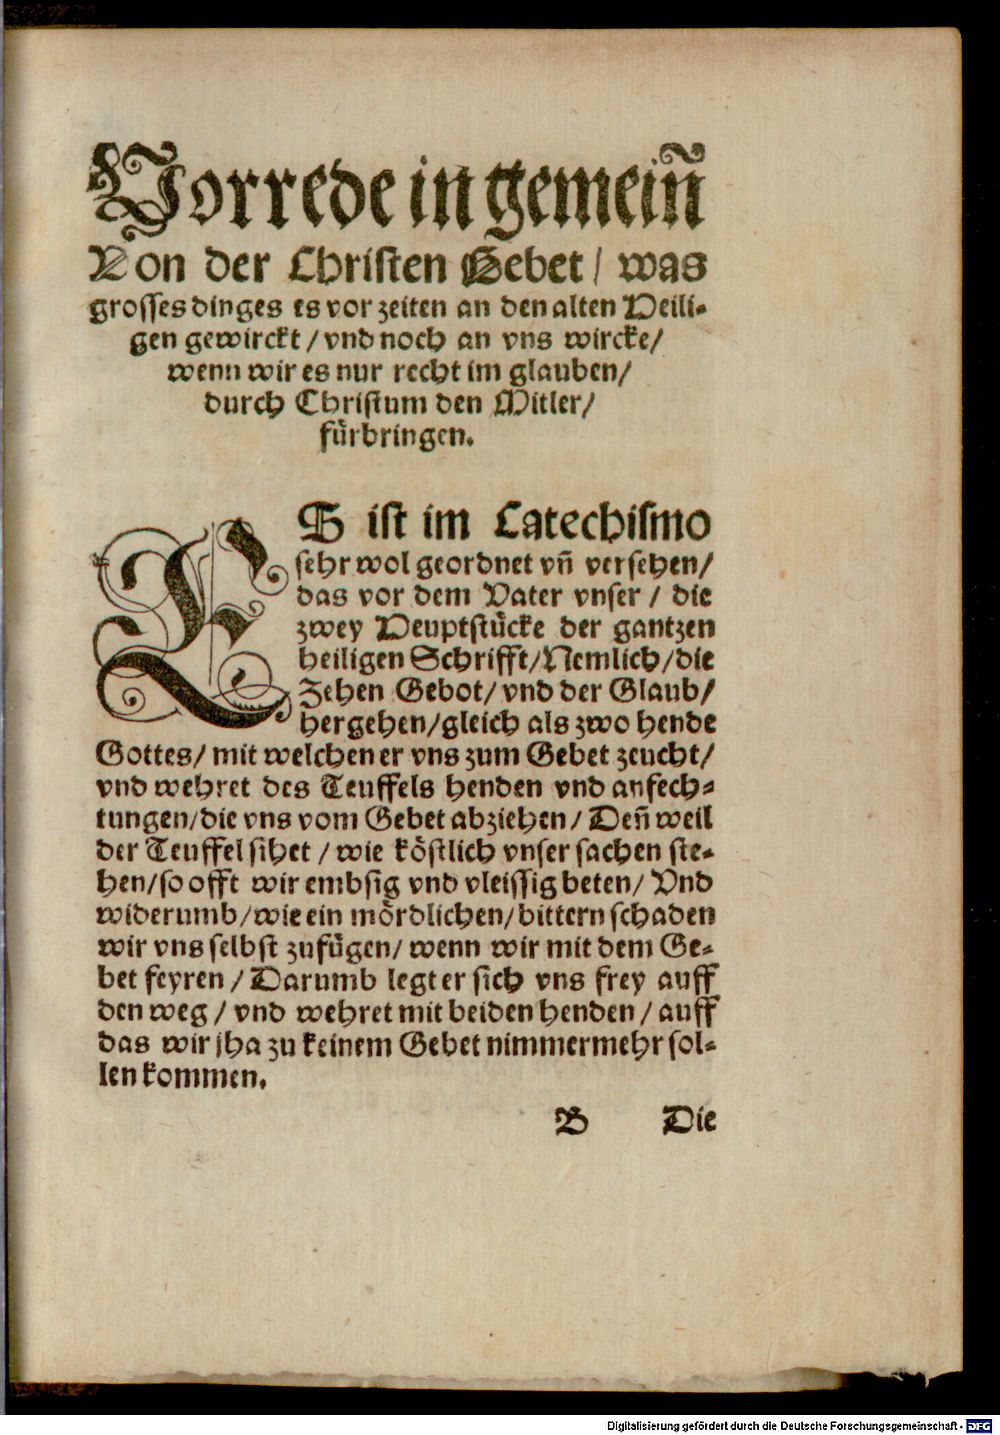 Vorrede in gemein̄
Von der Christen Gebet / was
grosses dinges es vor zeiten an den alten Heili-
gen gewirckt / vnd noch an vns wircke /
wenn wir es nur recht im glauben /
durch Christum den Mitler /
fürbringen.
ES ist im Catechismo
sehr wol geordnet vn̄ versehen /
das vor dem Vater vnser / die
zwey Heuptstücke der gantzen
heiligen Schrifft / Nemlich / die
Zehen Gebot / vnd der Glaub /
hergehen / gleich als zwo hende
Gottes / mit welchen er vns zum Gebet zeucht /
vnd wehret des Teuffels henden vnd anfech-
tungen / die vns vom Gebet abziehen / Den̄ weil
der Teuffel sihet / wie köstlich vnser sachen ste-
hen / so offt wir embsig vnd vleissig beten / Vnd
widerumb / wie ein mördlichen / bittern schaden
wir vns selbst zufügen / wenn wir mit dem Ge-
bet feyren / Darumb legt er sich vns frey auff
den weg / vnd wehret mit beiden henden / auff
das wir jha zu keinem Gebet nimmermehr sol-
len kommen.
B Die
Digitalisierung gefördert durch die Deutsche Forschungsgemeinschaft - DFG